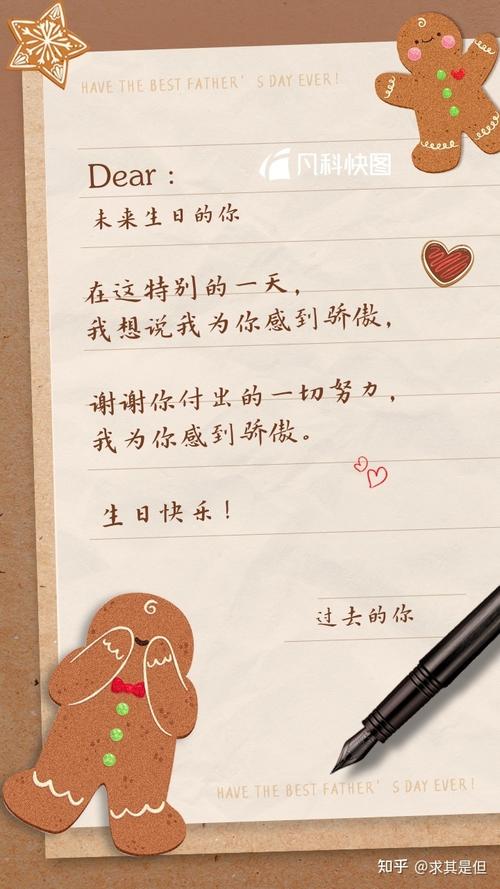 HAVE THE BEST FATHER'S DAY EVER!
凡科快图
Dear :
未来生日的你
在这特别的一天，
我想说我为你感到骄傲，
谢谢你付出的一切努力，
我为你感到骄傲。
生日快乐！
过去的你
HAVE THE BEST FATHER'S DAY EVER!
知乎 @求其是但